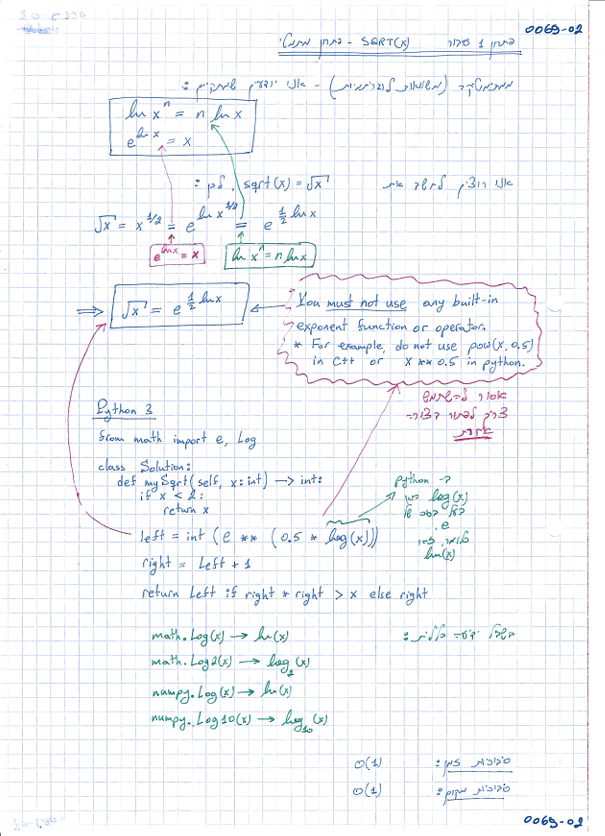 0069-02
פתרון 1 עבור SQRT(x) - פתרון מתמטי
ממתמטיקה (משוואות לוגריתמיות) - אנו יודעין שמתקיים :
ln xⁿ = n ln x
e^(ln x) = x
אנו רוצין לחשב את sqrt(x) = √x , לכן :
√x = x^(1/2) = e^(ln x^(1/2)) = e^(½ ln x)
e^(ln x) = x
ln xⁿ = n ln x
⟹ √x = e^(½ ln x)
You must not use any built-in
exponent function or operator.
* For example, do not use pow(x, 0.5)
in C++ or x ** 0.5 in python.
אסור להשתמש
צריך לפתור בצורה
אחרת
Python 3
from math import e, log
class Solution:
def mySqrt(self, x: int) → int:
if x < 2:
return x
left = int (e ** (0.5 * log(x)))
right = left + 1
return left if right * right > x else right
ב- python
log(x)
הוא בבסיס של
e
כלומר
ln(x)
בשביל ידע כללי :
math.log(x) → ln(x)
math.log2(x) → log₂(x)
numpy.log(x) → ln(x)
numpy.log10(x) → log₁₀(x)
סיבוכיות זמן : O(1)
סיבוכיות מקום : O(1)
0069-02